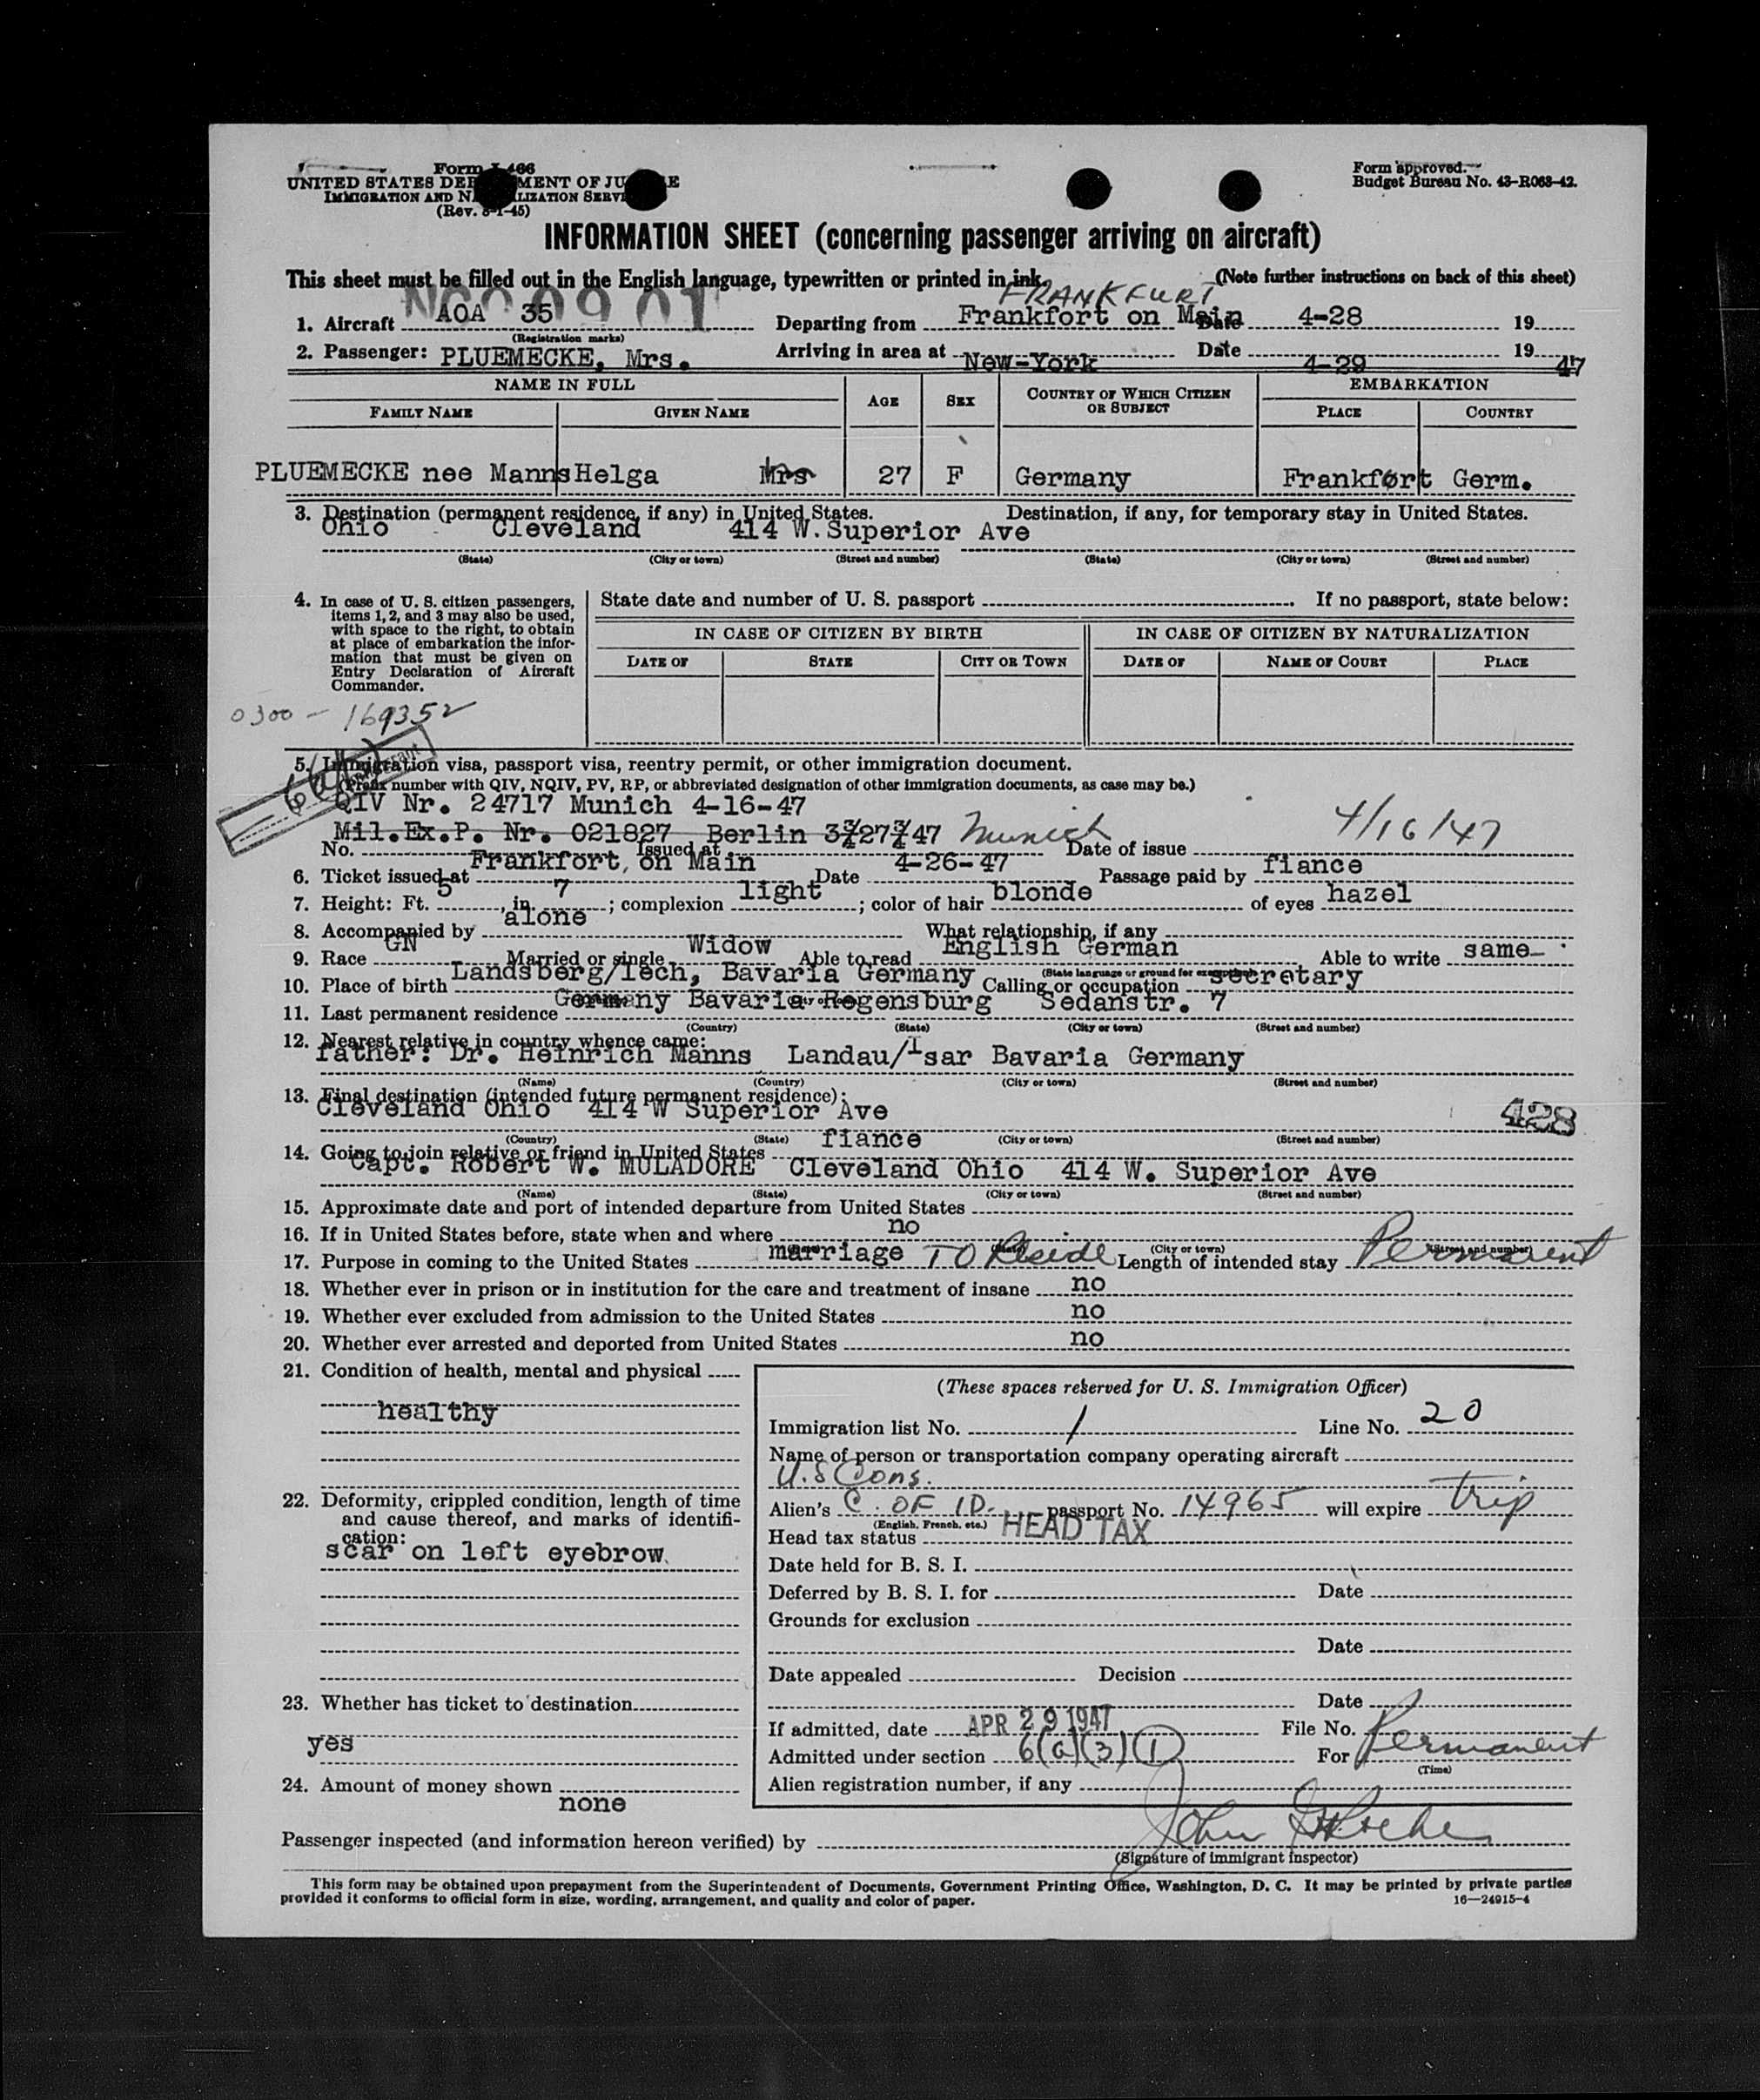 Form I-466
UNITED STATES DEPARTMENT OF JUSTICE
IMMIGRATION AND NATURALIZATION SERVICE
(Rev. 8-1-45)
Form approved.
Budget Bureau No. 43-R063-42.
INFORMATION SHEET (concerning passenger arriving on aircraft)
This sheet must be filled out in the English language, typewritten or printed in ink. (Note further instructions on back of this sheet)
FRANKFURT
1. Aircraft AOA 35 Departing from Frankfort on Main Date 4-28 19
(Registration marks)
2. Passenger: PLUEMECKE, Mrs. Arriving in area at New-York Date 4-29 19 47
NAME IN FULL AGE SEX COUNTRY OF WHICH CITIZEN OR SUBJECT EMBARKATION
FAMILY NAME GIVEN NAME PLACE COUNTRY
PLUEMECKE nee Manns Helga Mrs 27 F Germany Frankfort Germ.
3. Destination (permanent residence, if any) in United States. Destination, if any, for temporary stay in United States.
Ohio Cleveland 414 W. Superior Ave
(State) (City or town) (Street and number) (State) (City or town) (Street and number)
4. In case of U. S. citizen passengers,
items 1, 2, and 3 may also be used,
with space to the right, to obtain
at place of embarkation the infor-
mation that must be given on
Entry Declaration of Aircraft
Commander.
State date and number of U. S. passport If no passport, state below:
IN CASE OF CITIZEN BY BIRTH IN CASE OF CITIZEN BY NATURALIZATION
DATE OF STATE CITY OR TOWN DATE OF NAME OF COURT PLACE
0300 - 169352
5. Immigration visa, passport visa, reentry permit, or other immigration document.
(Prefix number with QIV, NQIV, PV, RP, or abbreviated designation of other immigration documents, as case may be.)
QIV Nr. 24717 Munich 4-16-47
Mil.Ex.P. Nr. 021827 Berlin 3-27-47 Munich 4/16/47
No. Issued at Date of issue
6. Ticket issued at Frankfort, on Main Date 4-26-47 Passage paid by fiance
7. Height: Ft. 5, in. 7; complexion light; color of hair blonde of eyes hazel
8. Accompanied by alone What relationship, if any
9. Race GN Married or single Widow Able to read English German Able to write same
(State language or ground for exemption)
10. Place of birth Landsberg/Lech, Bavaria Germany Calling or occupation secretary
11. Last permanent residence Germany Bavaria Regensburg Sedanstr. 7
(Country) (State) (City or town) (Street and number)
12. Nearest relative in country whence came:
father: Dr. Heinrich Manns Landau/Isar Bavaria Germany
(Name) (Country) (City or town) (Street and number)
13. Final destination (intended future permanent residence):
Cleveland Ohio 414 W Superior Ave 428
(Country) (State) (City or town) (Street and number)
14. Going to join relative or friend in United States fiance
Capt. Robert W. MULADORE Cleveland Ohio 414 W. Superior Ave
(Name) (State) (City or town) (Street and number)
15. Approximate date and port of intended departure from United States
16. If in United States before, state when and where no
(State) (City or town) (Street and number)
17. Purpose in coming to the United States marriage TO Reside Length of intended stay Permanent
18. Whether ever in prison or in institution for the care and treatment of insane no
19. Whether ever excluded from admission to the United States no
20. Whether ever arrested and deported from United States no
21. Condition of health, mental and physical
healthy
22. Deformity, crippled condition, length of time
and cause thereof, and marks of identifi-
cation:
scar on left eyebrow
23. Whether has ticket to destination
yes
24. Amount of money shown
none
(These spaces reserved for U. S. Immigration Officer)
Immigration list No. 1 Line No. 20
Name of person or transportation company operating aircraft
U.S Cons.
Alien's C. OF ID. passport No. 14965 will expire trip
(English, French, etc.)
Head tax status HEAD TAX
Date held for B. S. I.
Deferred by B. S. I. for Date
Grounds for exclusion
Date
Date appealed Decision
Date
If admitted, date APR 29 1947 File No.
Admitted under section 6(a)(3)(1) For Permanent
(Time)
Alien registration number, if any
Passenger inspected (and information hereon verified) by John
(Signature of immigrant inspector)
This form may be obtained upon prepayment from the Superintendent of Documents, Government Printing Office, Washington, D. C. It may be printed by private parties
provided it conforms to official form in size, wording, arrangement, and quality and color of paper.
16—24915-4